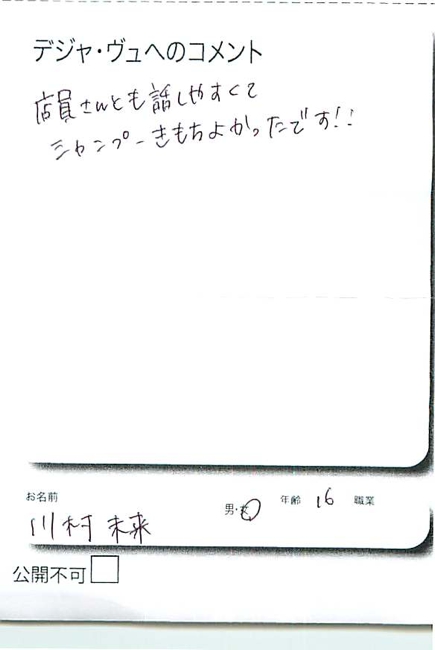 デジャ・ヴュへのコメント
店員さんとも話しやすくて
シャンプーきもちよかったです!!
お名前
川村 未来
男・女
年齢 16 職業
公開不可